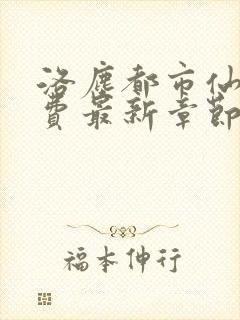 洛塵都市仙
費最新章節
福本伸行